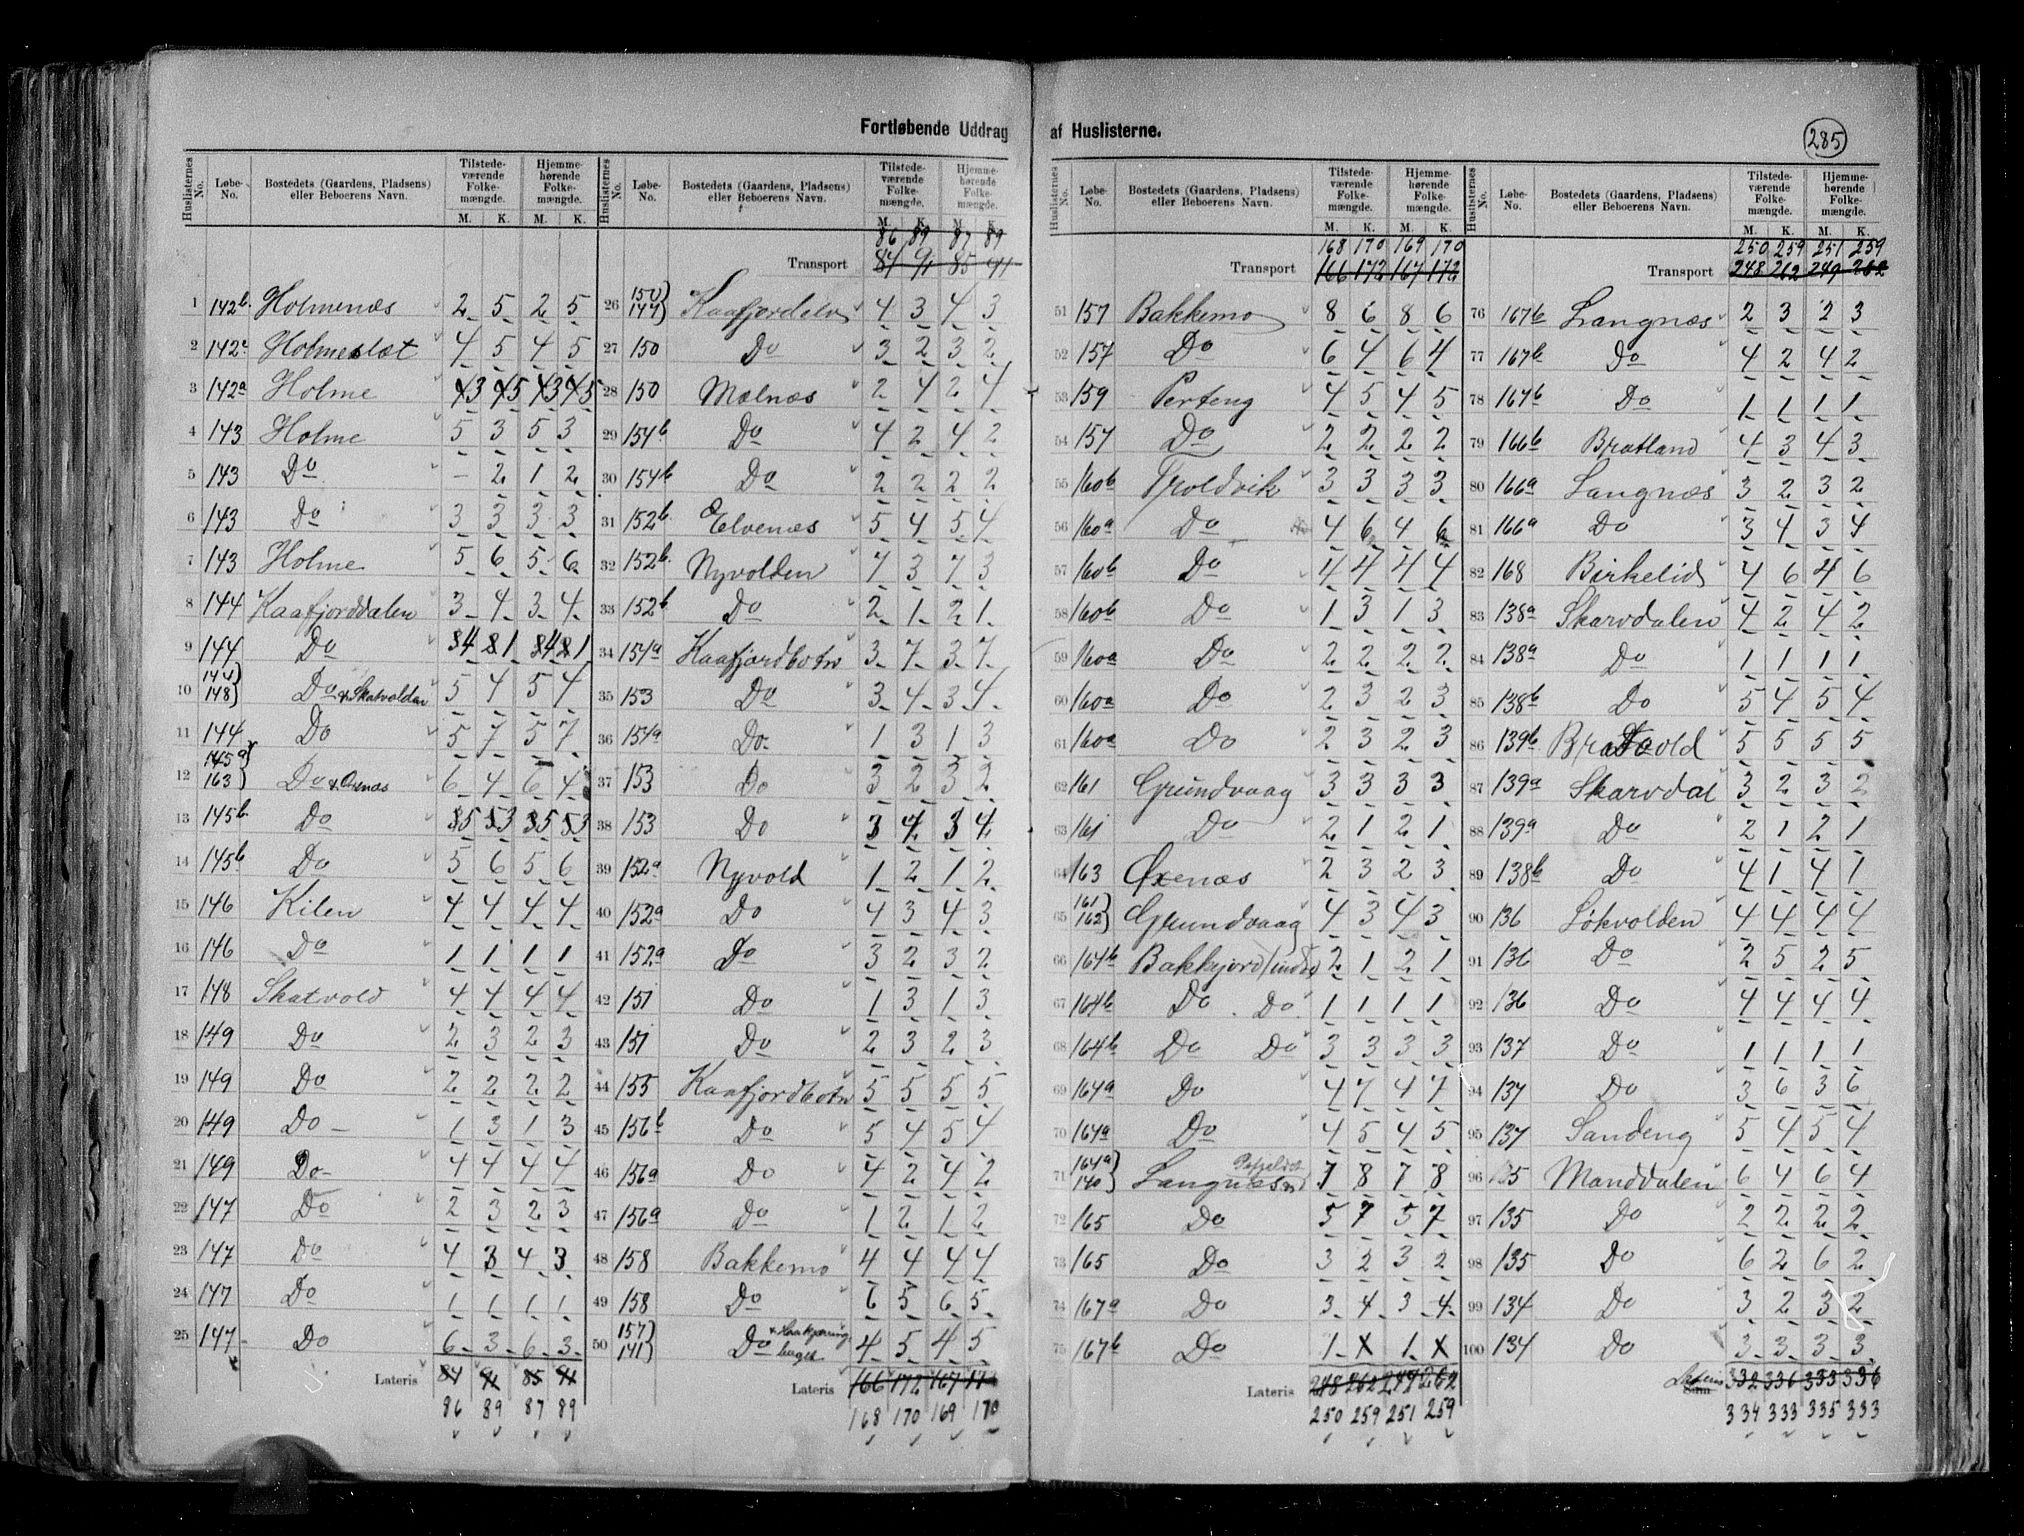 Fortløbende Uddrag af Huslisterne.
285
Huslisternes No. Løbe-No. Bostedets (Gaardens, Pladsens) eller Beboerens Navn. Tilstedeværende Folkemængde. M. K. Hjemmehørende Folkemængde. M. K.
1 142b Holmenæs 2 5 2 5
2 142c Holmeslæt 4 5 4 5
3 142a Holme 3 5 3 5
4 143 Holme 5 3 5 3
5 143 Do - 2 1 2
6 143 Do 3 3 3 3
7 143 Holme 5 6 5 6
8 144 Kaafjorddalen 3 4 3 4
9 144 Do 4 1 4 1
10 144) 148) Do & Skatvolden 5 4 5 4
11 144 Do 5 7 5 7
12 145a) 163) Do & Oxenæs 6 4 6 4
13 145b Do 5 3 5 3
14 145b Do 5 6 5 6
15 146 Kilen 4 4 4 4
16 146 Do 1 1 1 1
17 148 Skatvold 4 4 4 4
18 149 Do 2 3 2 3
19 149 Do 2 2 2 2
20 149 Do 1 3 1 3
21 149 Do 4 4 4 4
22 147 Do 2 3 2 3
23 147 Do 4 3 4 3
24 147 Do 1 1 1 1
25 147 Do 6 3 6 3
Lateris 84 91 85 91
86 89 87 89
Huslisternes No. Løbe-No. Bostedets (Gaardens, Pladsens) eller Beboerens Navn. Tilstedeværende Folkemængde. M. K. Hjemmehørende Folkemængde. M. K.
86 89 87 89
Transport 84 91 85 91
26 150) 144) Kaafjordelv 4 3 4 3
27 150 Do 3 2 3 2
28 150 Mælnæs 2 4 2 4
29 154b Do 4 2 4 2
30 154b Do 2 2 2 2
31 152b Elvenæs 5 4 5 4
32 152b Nyvolden 7 3 7 3
33 152b Do 2 1 2 1
34 154a Kaafjordbotn 3 7 3 7
35 153 Do 3 4 3 4
36 154a Do 1 3 1 3
37 153 Do 3 2 3 2
38 153 Do 3 4 3 4
39 152a Nyvold 1 2 1 2
40 152a Do 4 3 4 3
41 152a Do 3 2 3 2
42 151 Do 1 3 1 3
43 151 Do 2 3 2 3
44 155 Kaafjordbotn 5 5 5 5
45 156b Do 5 4 5 4
46 156a Do 4 2 4 2
47 156a Do 1 2 1 2
48 158 Bakkemo 4 4 4 4
49 158 Do 6 5 6 5
50 157) 141) Do 4 5 4 5
Lateris 166 172 167 172
168 170 169 170
Huslisternes No. Løbe-No. Bostedets (Gaardens, Pladsens) eller Beboerens Navn. Tilstedeværende Folkemængde. M. K. Hjemmehørende Folkemængde. M. K.
168 170 169 170
Transport 166 172 167 172
51 157 Bakkemo 8 6 8 6
52 157 Do 6 4 6 4
53 159 Perteng 4 5 4 5
54 157 Do 2 2 2 2
55 160b Troldvik 3 3 3 3
56 160a Do 4 6 4 6
57 160b Do 4 4 4 4
58 160b Do 1 3 1 3
59 160a Do 2 2 2 2
60 160a Do 2 3 2 3
61 160a Do 2 3 2 3
62 161 Grundvaag 3 3 3 3
63 161 Do 2 1 2 1
64 163 Oxenæs 2 3 2 3
65 161) 162) Grundvaag 4 3 4 3
66 164b Bakkejord 2 1 2 1
67 164b Do Do 1 1 1 1
68 164b Do Do 3 3 3 3
69 164a Do 4 7 4 7
70 164a Do 4 5 4 5
71 164a) 140) Langnæs 7 8 7 8
72 165 Do 5 7 5 7
73 165 Do 3 2 3 2
74 167a Do 3 4 3 4
75 167b Do 1 x 1 x
Lateris 248 262 249 262
250 259 251 259
Huslisternes No. Løbe-No. Bostedets (Gaardens, Pladsens) eller Beboerens Navn. Tilstedeværende Folkemængde. M. K. Hjemmehørende Folkemængde. M. K.
250 259 251 259
Transport 248 262 249 262
76 167b Langnæs 2 3 2 3
77 167b Do 4 2 4 2
78 167b Do 1 1 1 1
79 166b Bratland 4 3 4 3
80 166a Langnæs 3 2 3 2
81 166a Do 3 4 3 4
82 168 Birkelid 4 6 4 6
83 138a Skarvdalen 4 2 4 2
84 138a Do 1 1 1 1
85 138b Do 5 4 5 4
86 139b Bratvold 5 5 5 5
87 139a Skarvdal 3 2 3 2
88 139a Do 2 1 2 1
89 138b Do 4 1 4 1
90 136 Løkvolden 4 4 4 4
91 136 Do 2 5 2 5
92 136 Do 4 4 4 4
93 137 Do 1 1 1 1
94 137 Do 3 6 3 6
95 137 Sandeng 5 4 5 4
96 135 Manddalen 6 4 6 4
97 135 Do 2 2 2 2
98 135 Do 6 2 6 2
99 134 Do 3 2 3 2
100 134 Do 3 3 3 3
Lateris 332 336 333 336
334 333 335 333